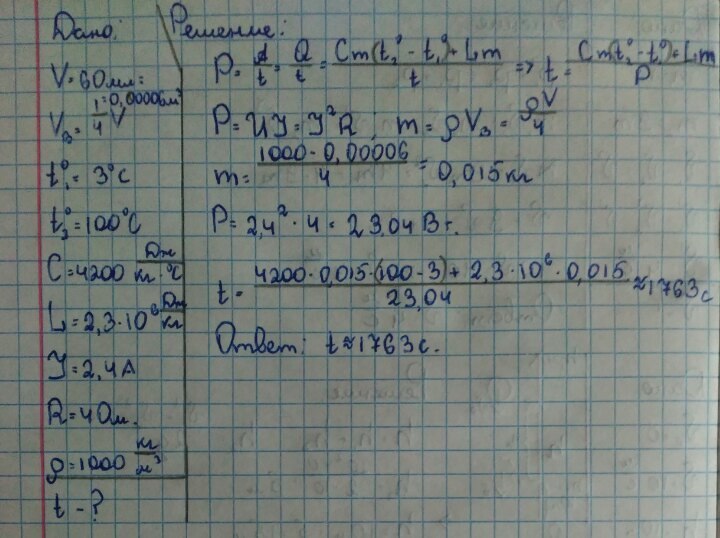 Дано:
V = 60 мл =
= 0,00006 м³
V₃ = 1/4 V
t₁° = 3°C
t₂° = 100°C
C = 4200 Дж/кг·°C
L = 2,3·10⁶ Дж/кг
J = 2,4 A
R = 4 Ом.
ρ = 1000 кг/м³
t - ?
Решение:
P = A/t = Q/t = (Cm(t₂° - t₁°) + Lm)/t => t = (Cm(t₂° - t₁°) + Lm)/P
P = UJ = J²R ; m = ρV₃ = ρV/4
m = (1000 · 0,00006)/4 = 0,015 кг
P = 2,4² · 4 = 23,04 Вт.
t = (4200·0,015·(100 - 3) + 2,3·10⁶·0,015)/23,04 ≈ 1763 с
Ответ: t ≈ 1763 с.